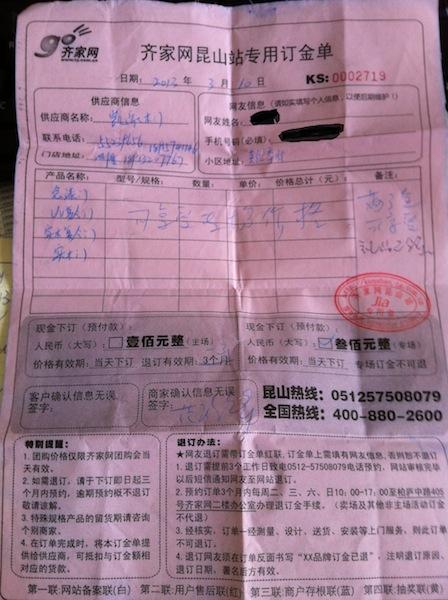 go 齐家网
齐家网昆山站专用订金单
日期: 2013 年 3 月 10 日 KS: 0002719
供应商信息
供应商名称:
联系电话:
门店地址:
网友信息 (请如实填写个人信息, 以便后期维护!)
网友姓名:
手机号码(必填):
小区地址:
产品名称: 型号/规格: 数量: 单价: 价格总计 (元): 备注:
可享
Jia
现金下订 (预付款)
人民币 (大写) : 壹佰元整 (主场)
价格有效期: 当天下订 退订有效期: 3个月
现金下订 (预付款) :
人民币 (大写) : 叁佰元整 (专场)
价格有效期: 当天下订 专场订金不可退
客户确认信息无误
签字:
商家确认信息无误
签字:
昆山热线: 051257508079
全国热线: 400-880-2600
特别提醒:
1. 团购价格仅限齐家网团购会当天有效。
2. 如需退订, 请于下订即日起三个月内预约, 逾期预约概不退订敬请谅解。
3. 特殊规格产品的留货期请咨询个别商家。
4. 在订单完成时, 将本订金单提供给供应商, 可抵扣与订金额相对应的货款。
退订办法:
★网友退订需带订金单红联, 订金单上需填有网友信息, 否则恕不退订
1. 退订需提前3个工作日致电0512-57508079电话预约, 网站审核完毕以后短信通知网友至网站退订。
2. 预约订单3个月内每周二、三、六、日10:00-17:00至柏庐中路405号齐家网二楼办公室办理退订金手续。 (卖场及其他非主场活动订金不代退)
3. 经核实, 订单一经测量、设计、送货、安装等上门服务, 则此订单不可退订。
4. 退订网友须在订单反面书写“XX品牌订金已退”, 注明退订原因、退订日期、署名后方有效。
第一联:网站备案联(白) 第二联:用户售后联(红) 第三联:商户存根联(蓝) 第四联:抽奖联(黄)